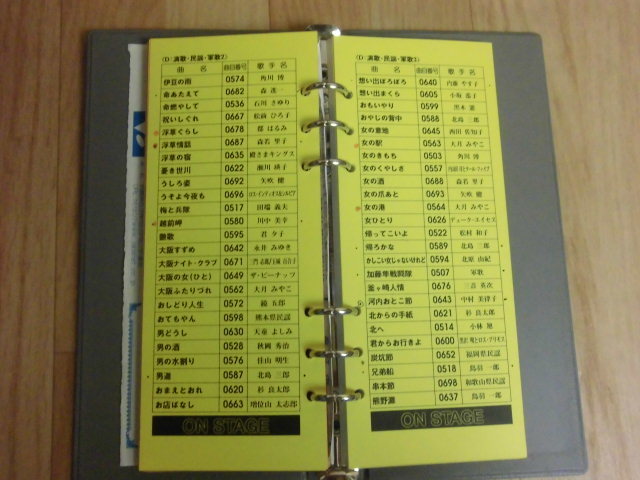 (D:演歌・民謡・軍歌2)
曲 名 曲目番号 歌 手 名
伊豆の雨 0574 角川 博
命あたえて 0682 森 進一
命燃やして 0536 石川 さゆり
祝いしぐれ 0667 松前 ひろ子
浮草ぐらし 0678 都 はるみ
浮草情話 0687 森若 里子
浮草の宿 0635 殿さまキングス
憂き世川 0622 瀬川 瑛子
うしろ姿 0692 矢吹 健
うそよ今夜も 0696 ロス・インディオス&シルビア
梅と兵隊 0517 田端 義夫
越前岬 0580 川中 美幸
艶歌 0595 君 夕子
大阪すずめ 0642 永井 みゆき
大阪ナイト・クラブ 0671
大阪の女(ひと) 0649 ザ・ピーナッツ
大阪ふたりづれ 0562 大月 みやこ
おしどり人生 0572 鏡 五郎
おてもやん 0598 熊本県民謡
男どうし 0630 天童 よしみ
男の酒 0528 秋岡 秀治
男の水割り 0576 佳山 明生
男道 0587 北島 三郎
おまえとおれ 0620 杉 良太郎
お店ばなし 0663 増位山 太志郎
ON STAGE
(D:演歌・民謡・軍歌3)
曲 名 曲目番号 歌 手 名
想い出ぼろぼろ 0640 内藤 やす子
想い出まくら 0605 小坂 恭子
おもいやり 0599 黒木 憲
おやじの背中 0588 北島 三郎
女の意地 0645 西田 佐知子
女の駅 0563 大月 みやこ
女のきもち 0503 角川 博
女のくやしさ 0557
女の酒 0688 森若 里子
女の爪あと 0693 矢吹 健
女の港 0564 大月 みやこ
女ひとり 0626 デューク・エイセス
帰ってこいよ 0522 松村 和子
帰ろかな 0589 北島 三郎
かしこい女じゃないけれど 0594 北原 由紀
加藤隼戦闘隊 0507 軍歌
釜ヶ崎人情 0676 三音 英次
河内おとこ節 0643 中村 美律子
北からの手紙 0621 杉 良太郎
北へ 0514 小林 旭
君からお行きよ 0600 黒沢 明とロス・プリモス
炭坑節 0652 福岡県民謡
兄弟船 0518 鳥羽 一郎
串本節 0698 和歌山県民謡
熊野灘 0637 鳥羽 一郎
ON STAGE